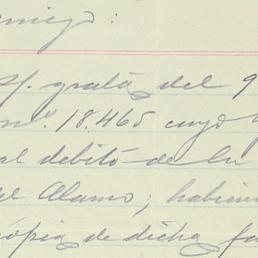 amigo:
gratá del 9
nº. 18.465 cuyo
al debitó de la
del Alamo; habien
cópia de dicha fa